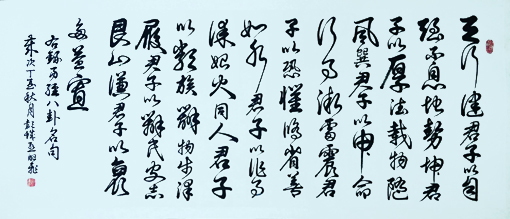 天行健君子以自
强不息地勢坤君
子以厚德載物隨
風巽君子以申命
行事洊雷震君
子以恐懼修省善
如水君子以作事
謀始火同人君子
以類族辨物步澤
履君子以辨民安志
艮山謙君子以裒
多益寡
右録易經八卦名句
次丁亥秋月